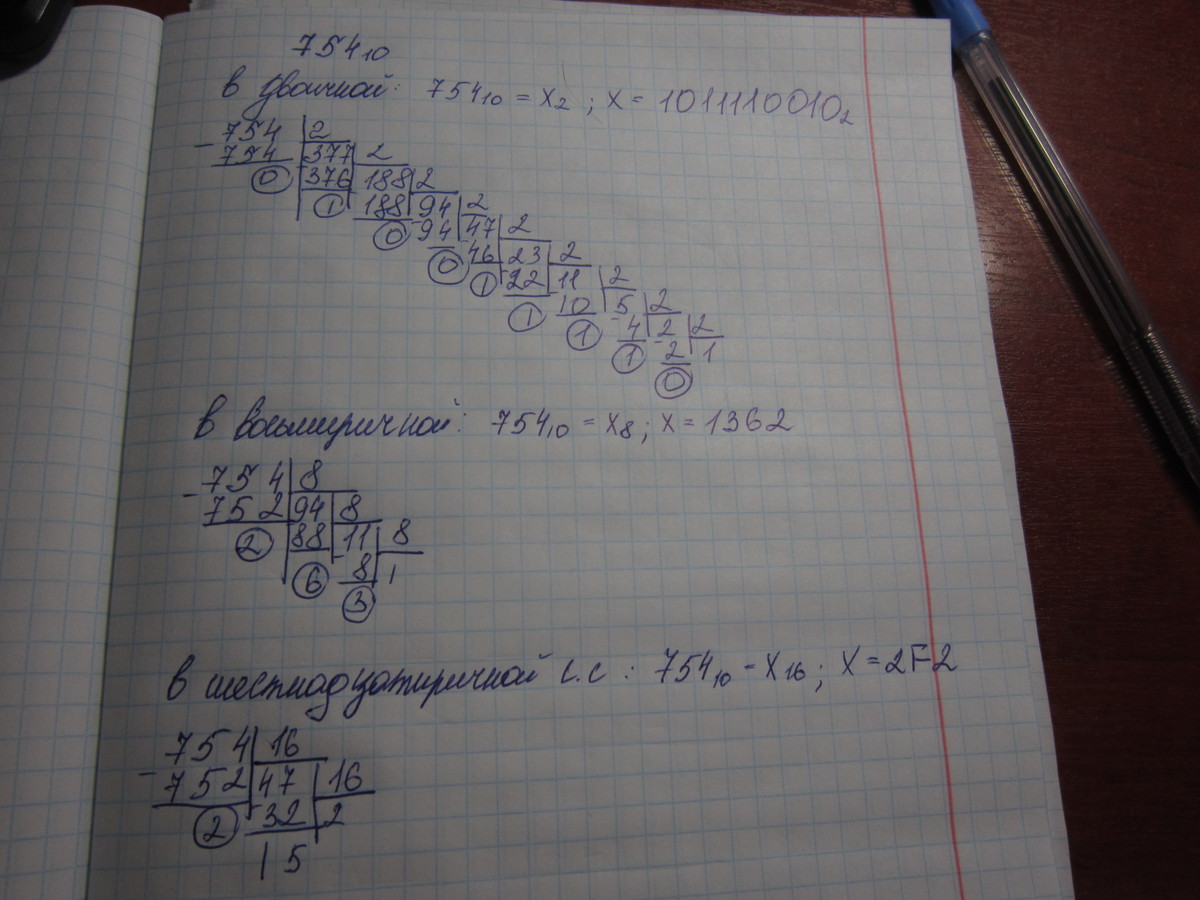 754₁₀
в двоичной: 754₁₀ = X₂ ; X = 1011110010₂
754 2
- 754 377 2
0 376 188 2
1 188 94 2
0 94 47 2
0 46 23 2
1 22 11 2
1 10 5 2
1 4 2 2
1 2 1
0
в восьмиричной: 754₁₀ = X₈ ; X = 1362
- 754 8
752 94 8
2 88 11 8
6 8 1
3
в шестнадцатиричной с.с : 754₁₀ = X₁₆ ; X = 2F2
- 754 16
752 47 16
2 32 2
15